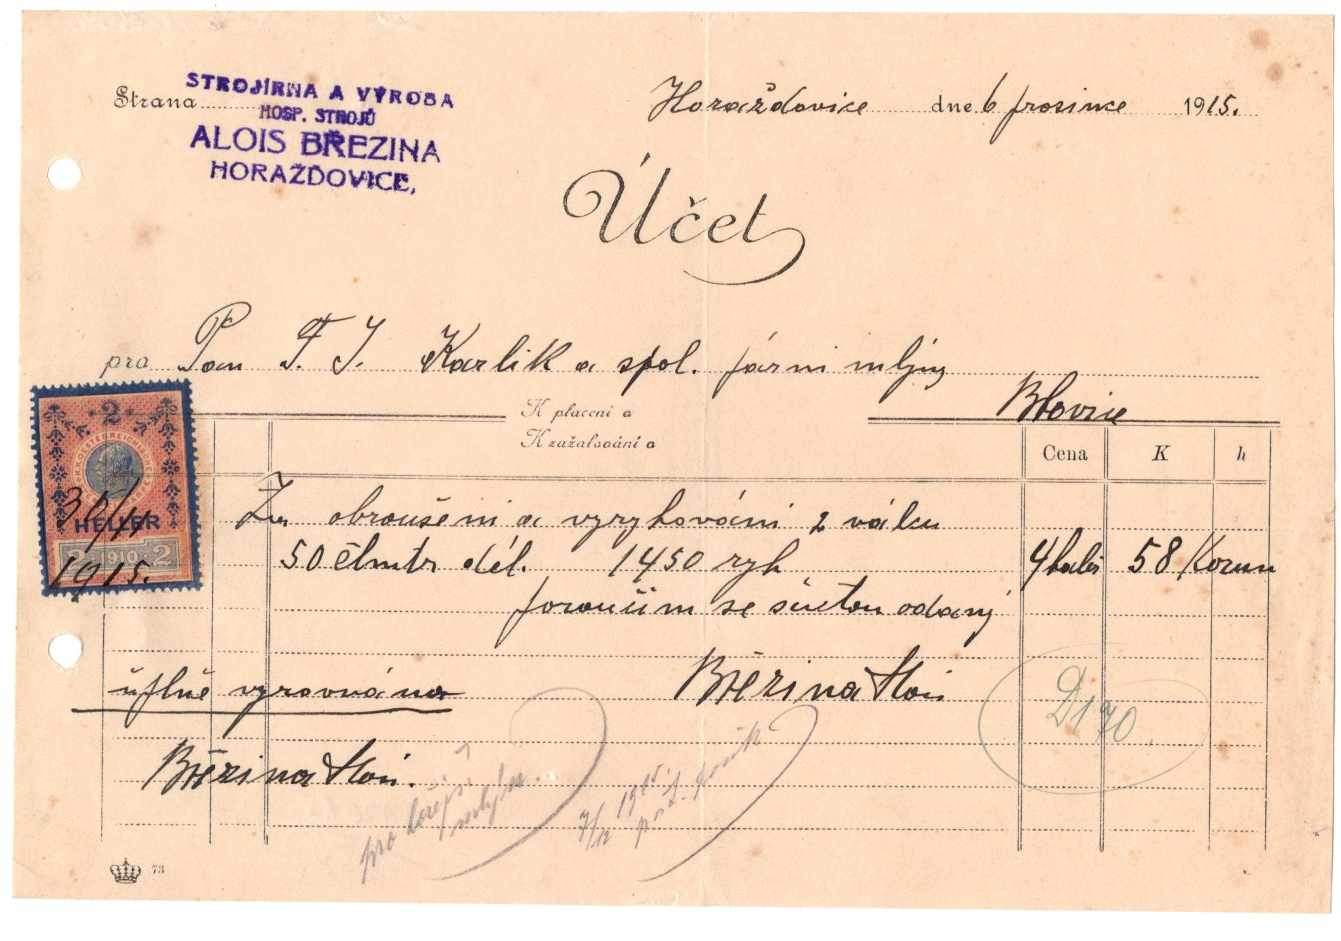 Strana
STROJÍRNA A VÝROBA
HOSP. STROJŮ
ALOIS BŘEZINA
HORAŽĎOVICE,
Horažďovice dne 6 prosince 1915.
Účet
pro Pan F. J. Karlik a spol. párni mlýny
Blovice
K placení a
K zažalování a
Cena K h
2
HELLER
1910
2 2
30/11
1915.
Za obroušeni a vyryhováni 2 válcu
50 čtmtr dél. 1450 ryh 4 haléř 58 Korun
poroučim se súctou odaný
Březina Alois
úplně vyrovnáno
Březina Alois.
D170
pro hořejší
mlýn.
7/12 1915
73